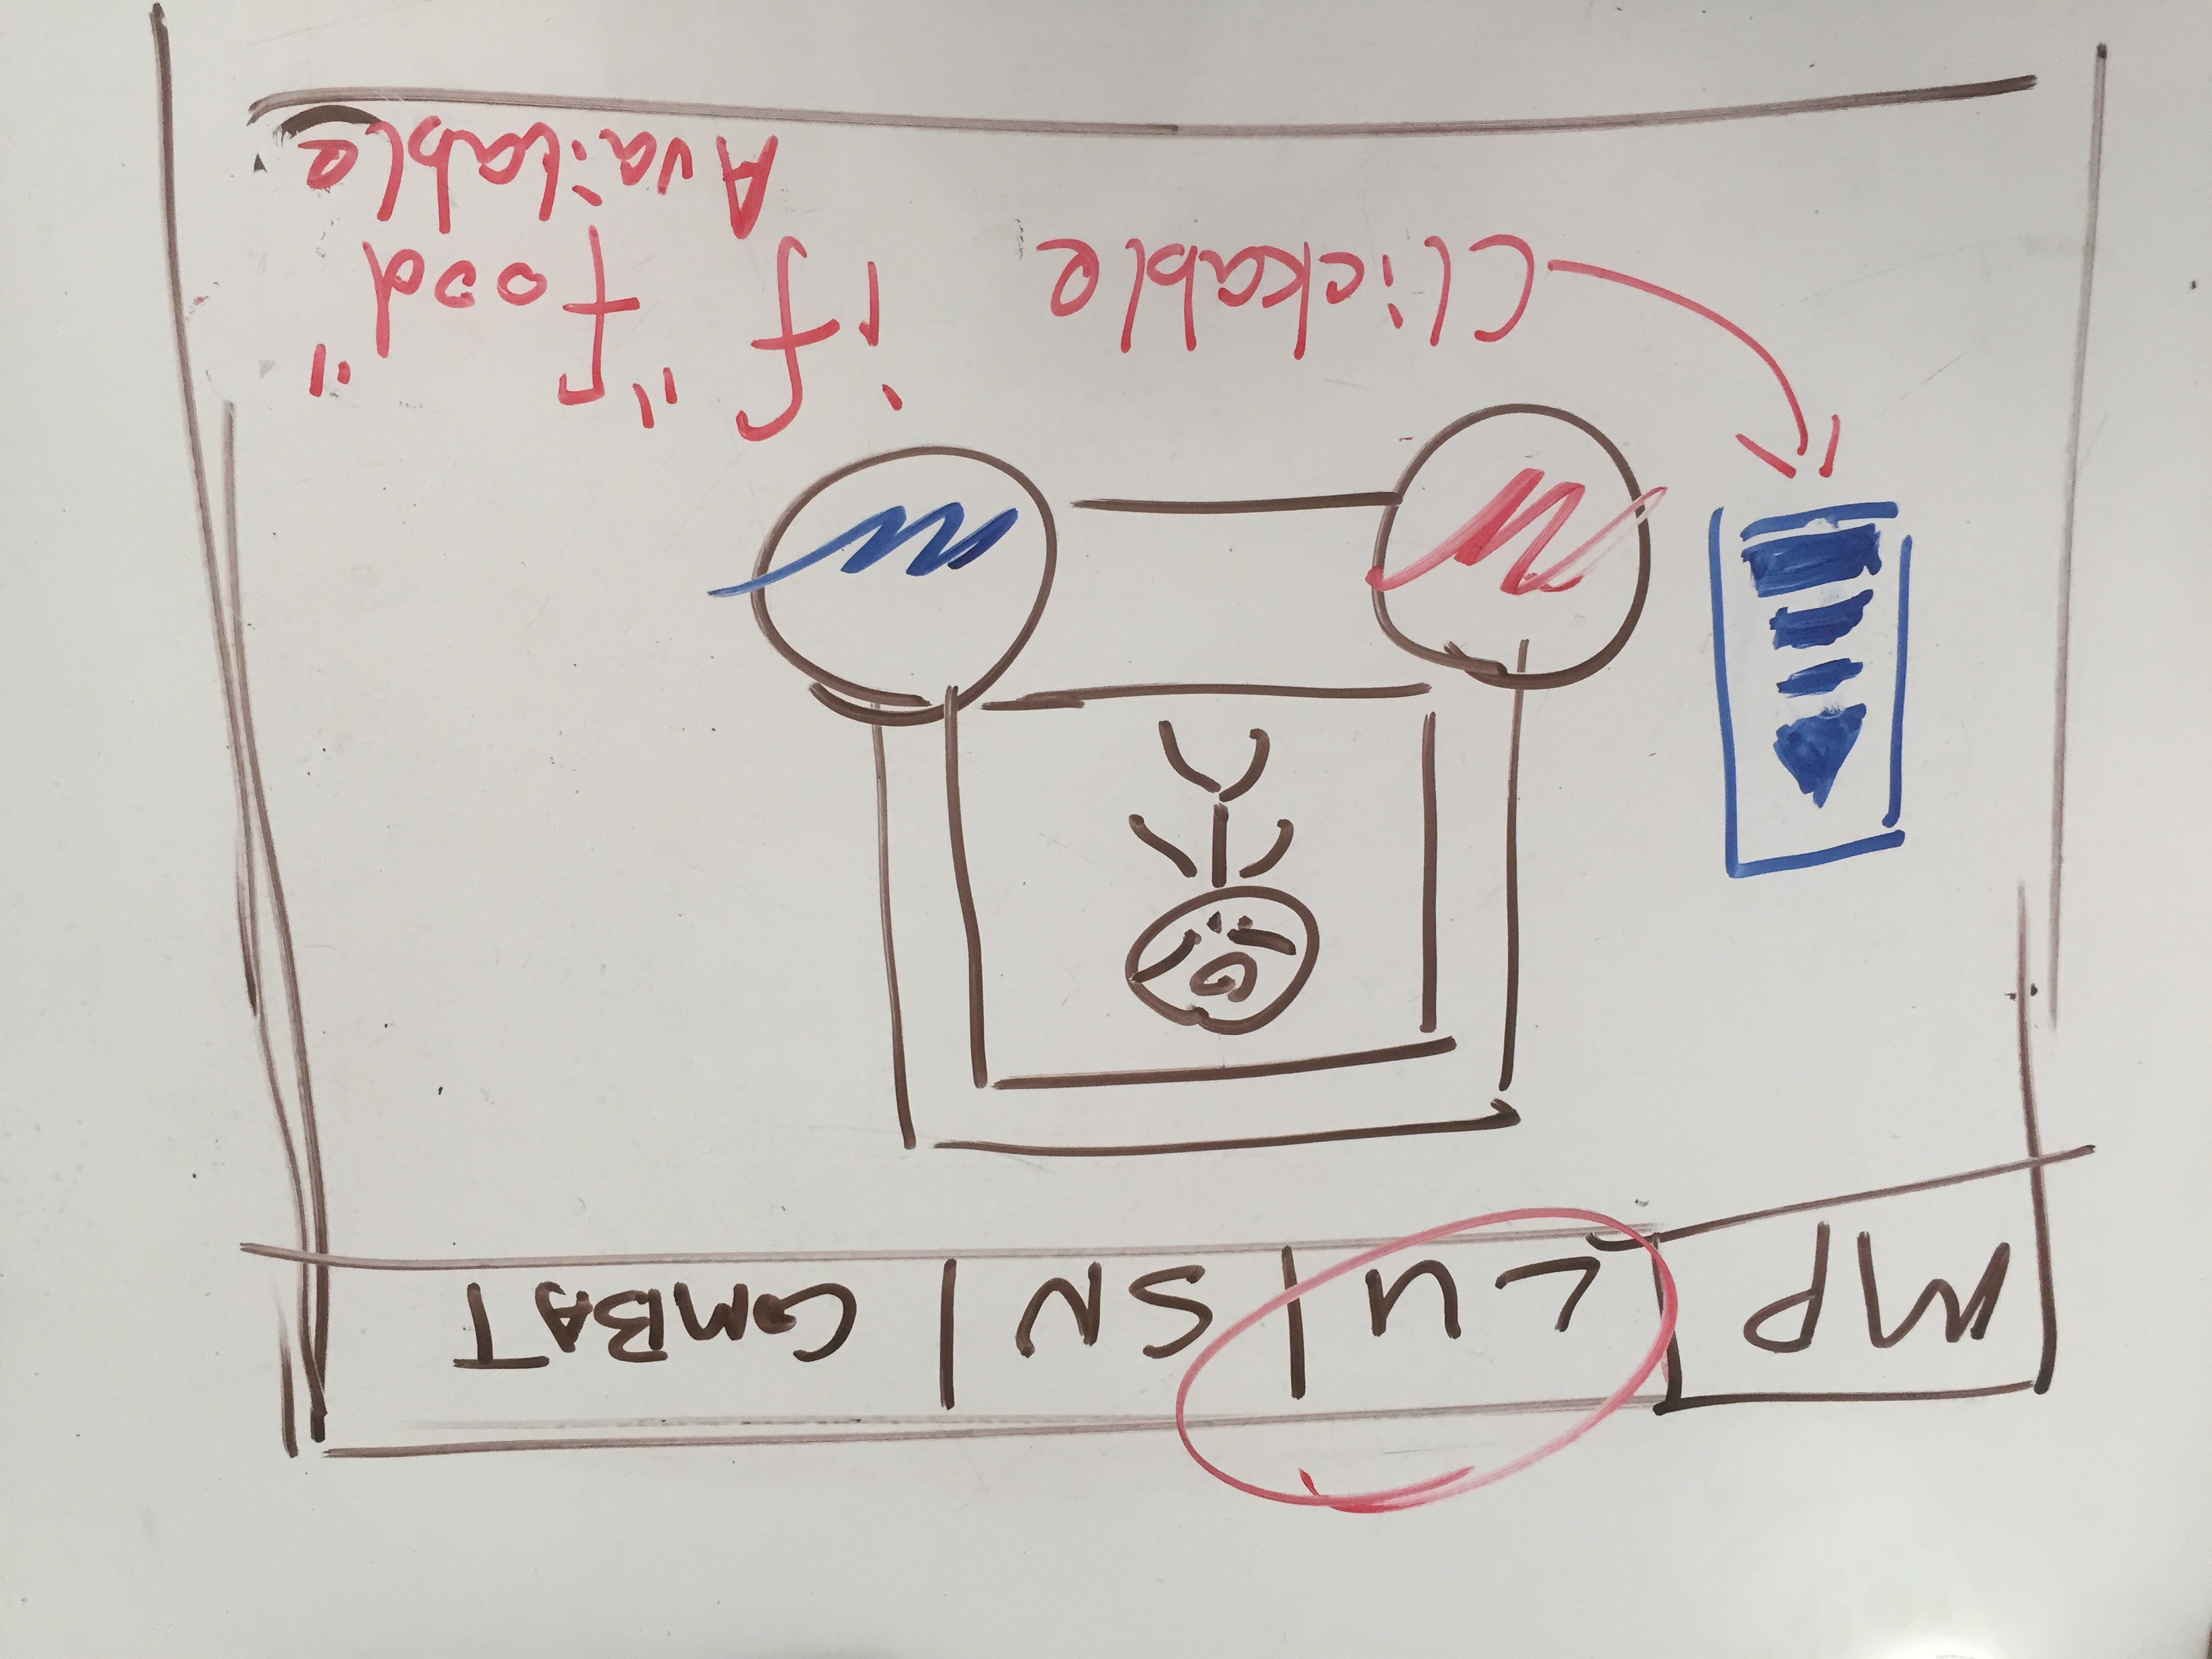 MP LU SN COMBAT
Clickable if "food"
Available